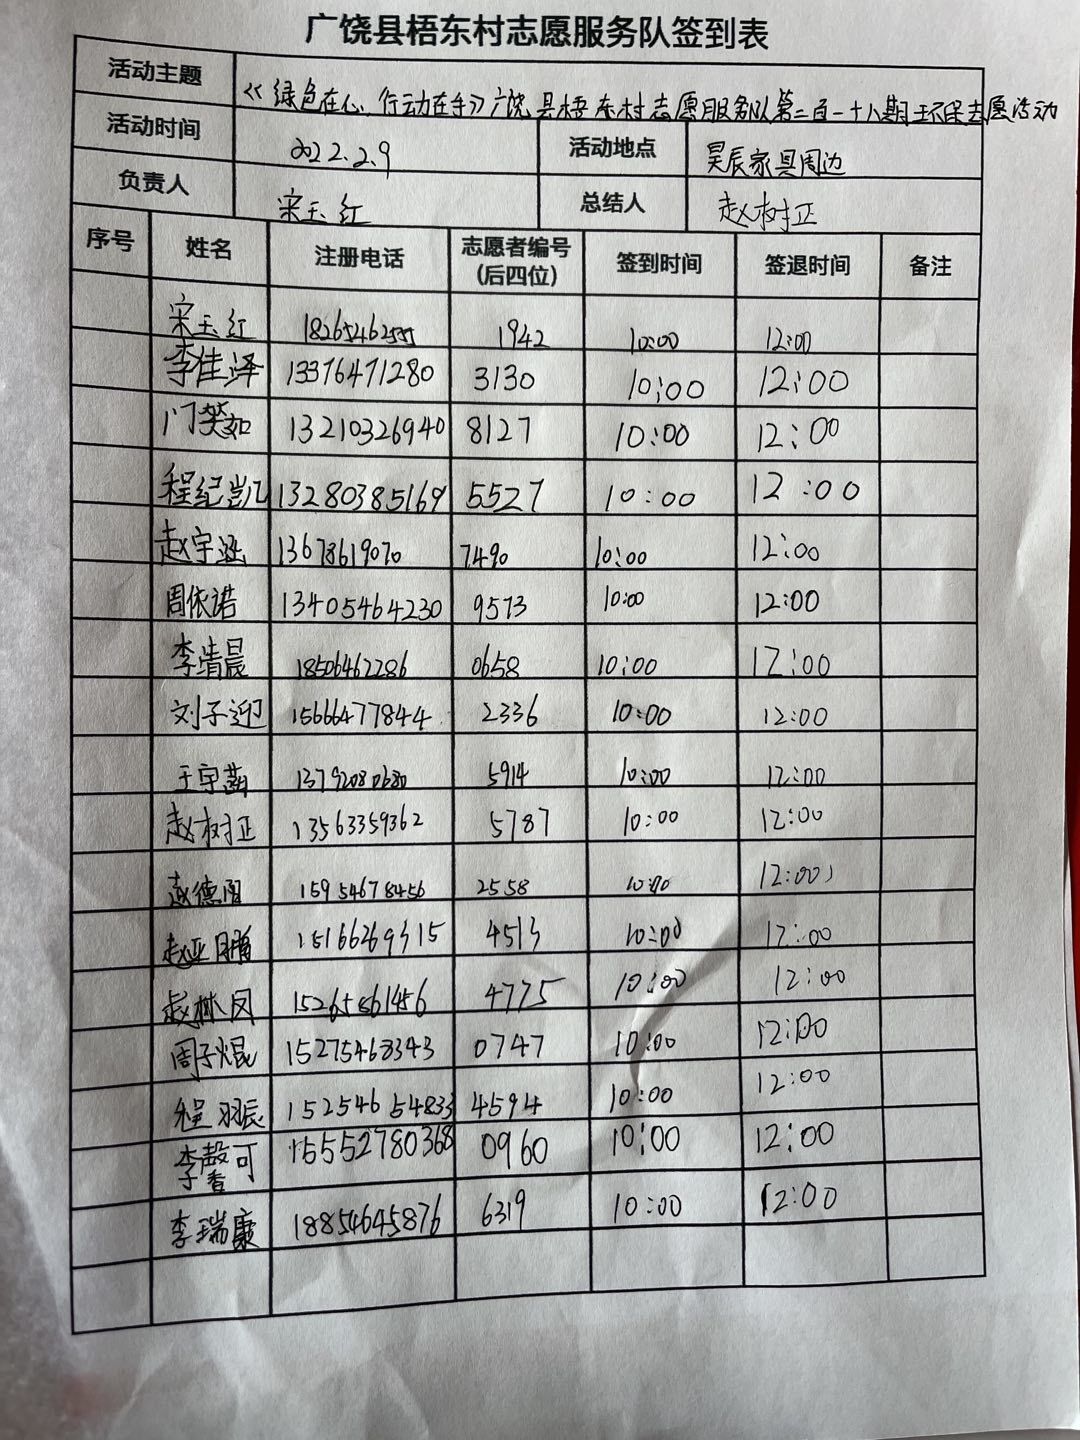 广饶县梧东村志愿服务队签到表
活动主题 《绿色在心、行动在手》广饶县梧东村志愿服务队第二百一十八期环保志愿活动
活动时间 2022.2.9 活动地点 昊辰家具周边
负责人 宋玉红 总结人 赵树正
序号 姓名 注册电话 志愿者编号(后四位) 签到时间 签退时间 备注
宋玉红 1942 10:00 12:00
李佳泽 13376471280 3130 10:00 12:00
门笑如 13210326940 8127 10:00 12:00
程纪凯 13280385169 5527 10:00 12:00
赵宇涵 13678619070 7490 10:00 12:00
周依诺 13405464230 9573 10:00 12:00
李清晨 18506462286 0658 10:00 12:00
刘子迎 15666477844 2336 10:00 12:00
王宇菡 13792080680 5914 10:00 12:00
赵树正 13563359362 5787 10:00 12:00
赵德阳 15954678456 2558 10:00 12:00
赵亚鹏 15166269315 4513 10:00 12:00
赵林凤 15265861456 4775 10:00 12:00
周子焜 15275468343 0747 10:00 12:00
程羽辰 15254654833 4594 10:00 12:00
李馨可 15552780368 0960 10:00 12:00
李瑞康 18854645876 6319 10:00 12:00